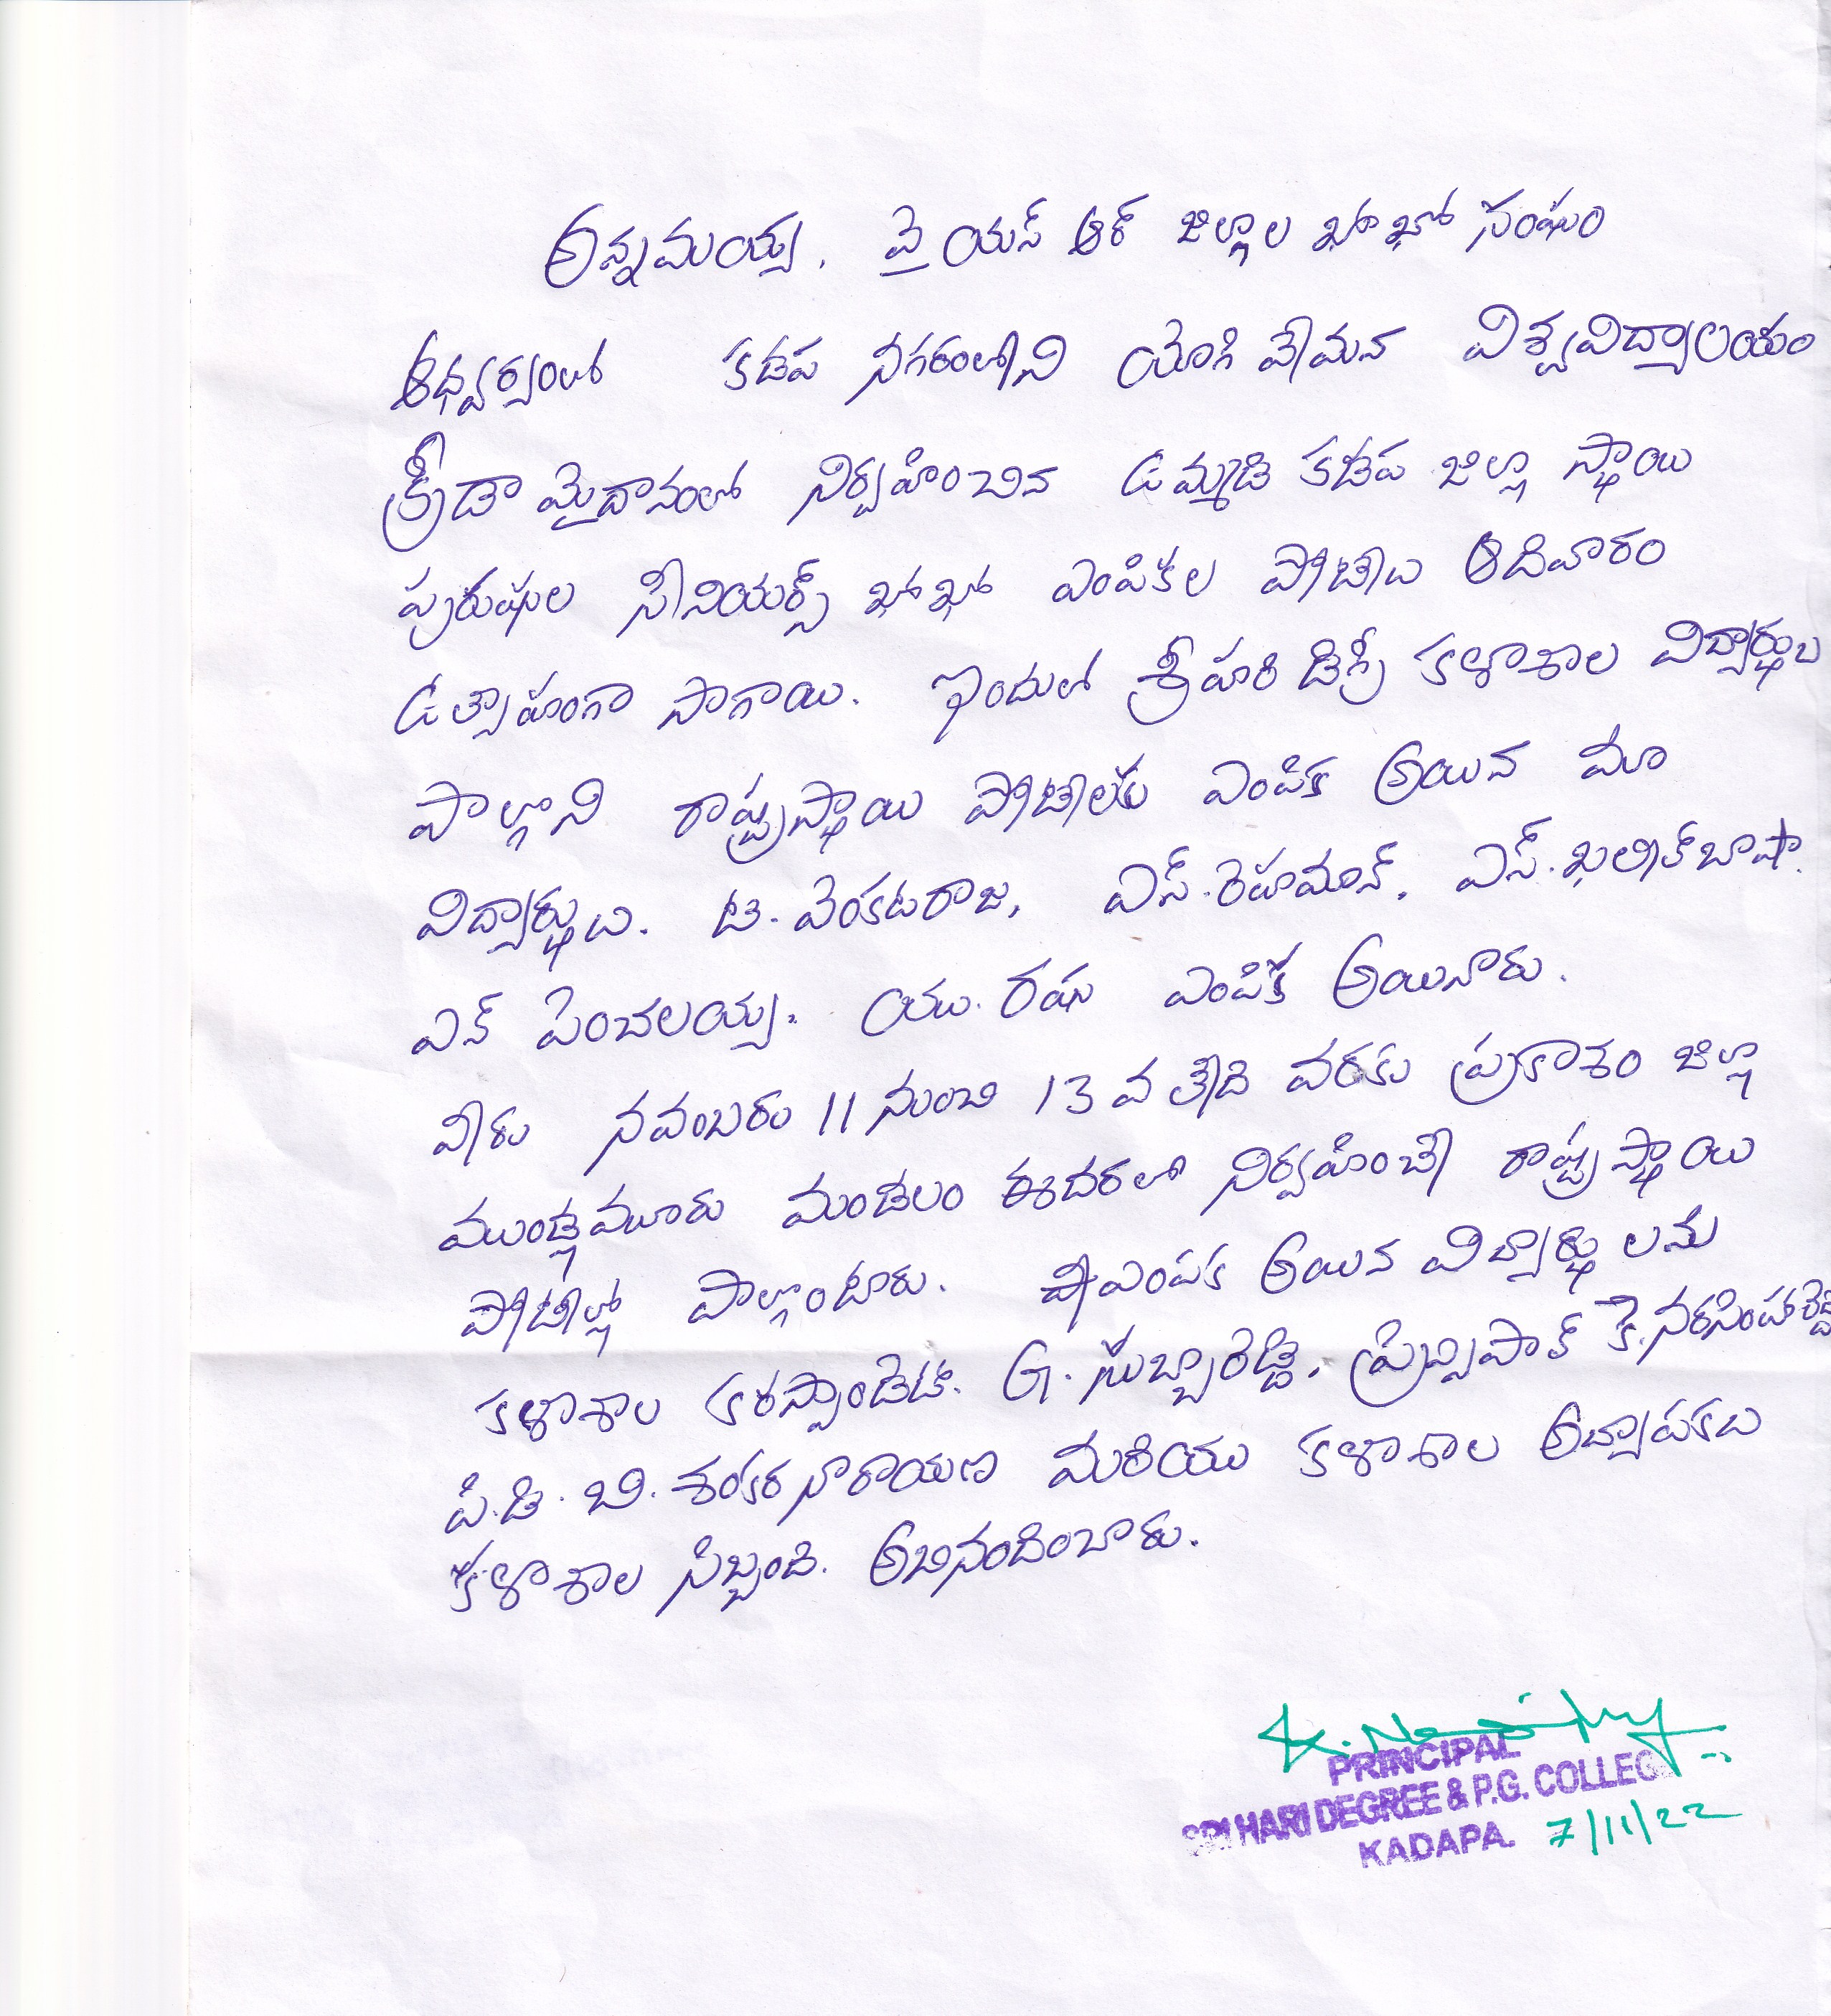 అన్నమయ్య, వై యస్ ఆర్ జిల్లాల ఖోఖో సంఘం
ఆధ్వర్యంలో కడప నగరంలోని యోగి వేమన విశ్వవిద్యాలయం
క్రీడా మైదానంలో నిర్వహించిన ఉమ్మడి కడప జిల్లా స్థాయి
పురుషుల సీనియర్స్ ఖోఖో ఎంపికల పోటీలు ఆదివారం
ఉత్సాహంగా సాగాయి. ఇందులో శ్రీహరి డిగ్రీ కళాశాల విద్యార్థులు
పాల్గొని రాష్ట్రస్థాయి పోటీలకు ఎంపిక అయిన మా
విద్యార్థులు. టి. వెంకటరాజ, ఎస్. రెహమాన్, ఎస్. ఖలీల్ బాషా.
ఎన్ పెంచలయ్య. యు. రఘు ఎంపిక అయినారు.
వీరు నవంబరు 11 నుంచి 13 వ తేది వరకు ప్రకాశం జిల్లా
ముండ్లమూరు మండలం ఈదరలో నిర్వహించే రాష్ట్ర స్థాయి
పోటీల్లో పాల్గొంటారు. ఎంపిక అయిన విద్యార్థులను
కళాశాల కరస్పాండెంట్. G. సుబ్బారెడ్డి, ప్రిన్సిపాల్ కె. నరసింహారెడ్డి
పి.డి. బి. శంకర నారాయణ మరియు కళాశాల అధ్యాపకులు
కళాశాల సిబ్బంది. అభినందించారు.
PRINCIPAL
SRI HARI DEGREE & P.G. COLLEG
KADAPA. 7/11/22